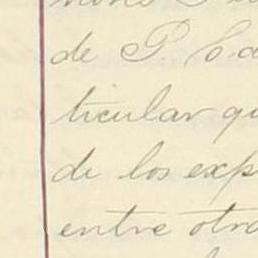 de P.
ticular qu
de los exp
entre otra